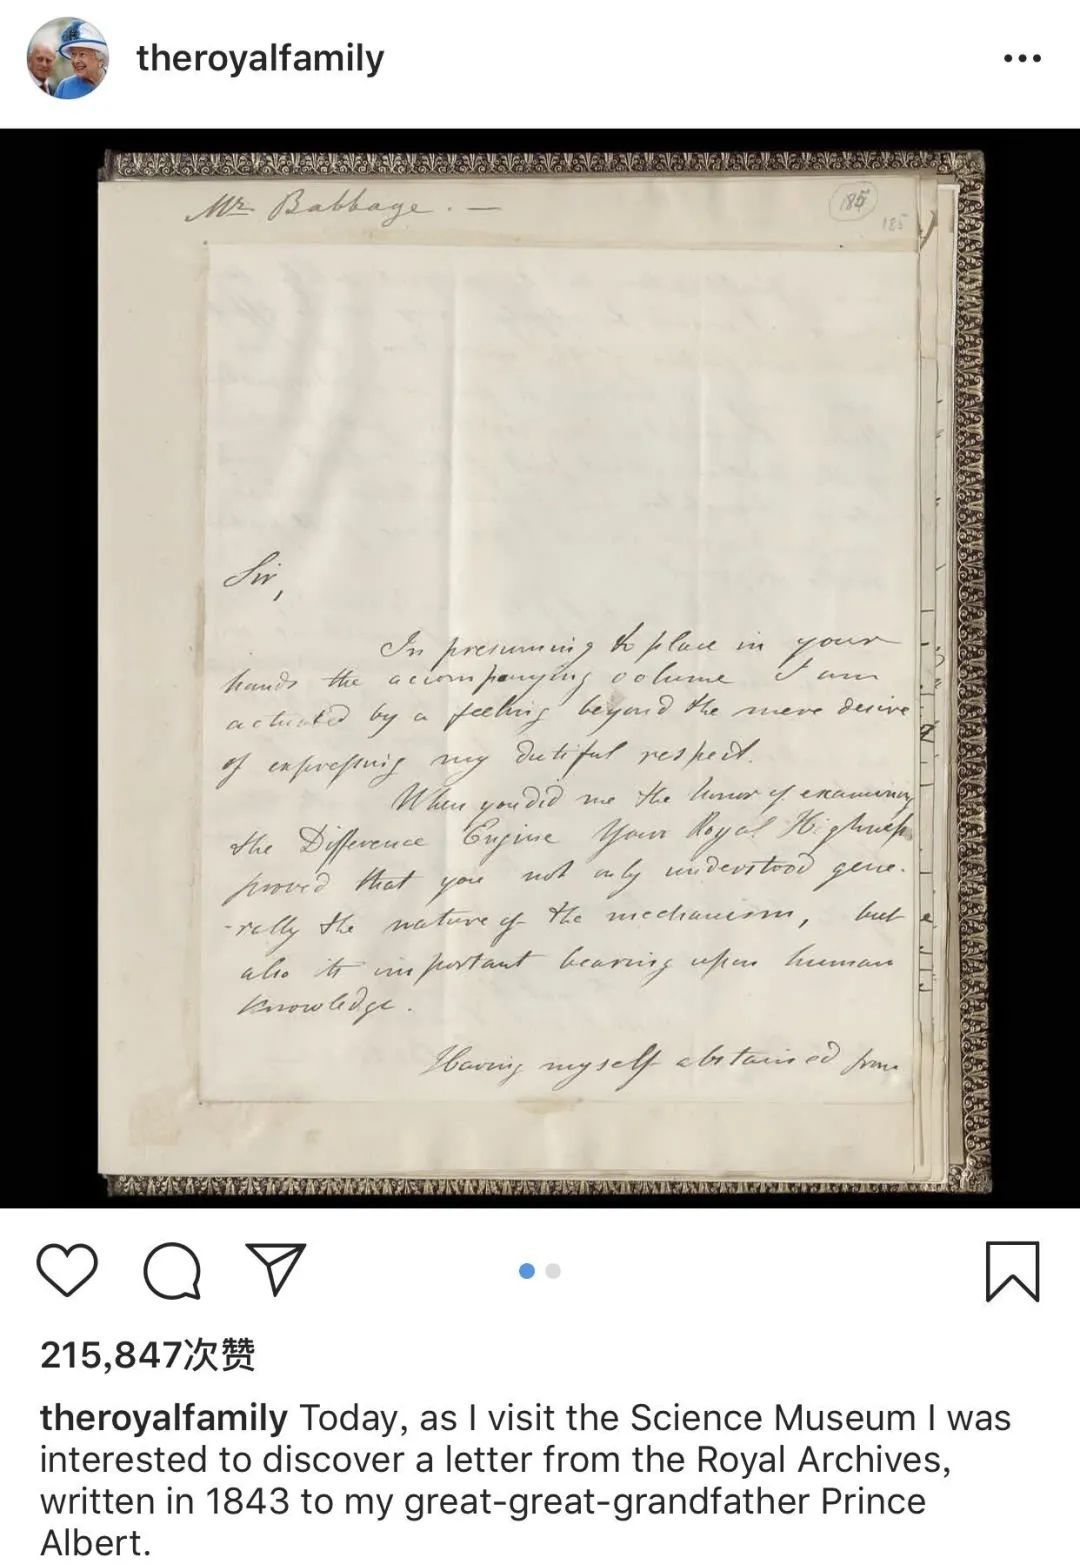 theroyalfamily
Mr Babbage. —
185
185
Sir,
In presuming to place in your
hands the accompanying volume I am
actuated by a feeling beyond the mere desire
of expressing my dutiful respect.
When you did me the honor of examining
the Difference Engine Your Royal Highness
proved that you not only understood gene-
-rally the nature of the mechanism, but
also its important bearing upon human
knowledge.
Having myself abstained from
215,847次赞
theroyalfamily Today, as I visit the Science Museum I was
interested to discover a letter from the Royal Archives,
written in 1843 to my great-great-grandfather Prince
Albert.